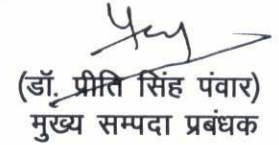 (डॉ. प्रीति सिंह पंवार)
मुख्य सम्पदा प्रबंधक